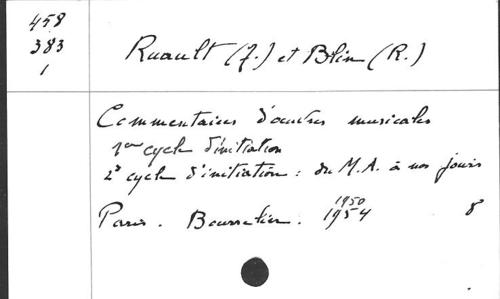 458
383
1
Ruault (J.) et Blin (R.)
Commentaires d'œuvres musicales
1er cycle d'initiation
2e cycle d'initiation : du M.A. à nos jours
1950
Paris. Bourrelier. 1954 8